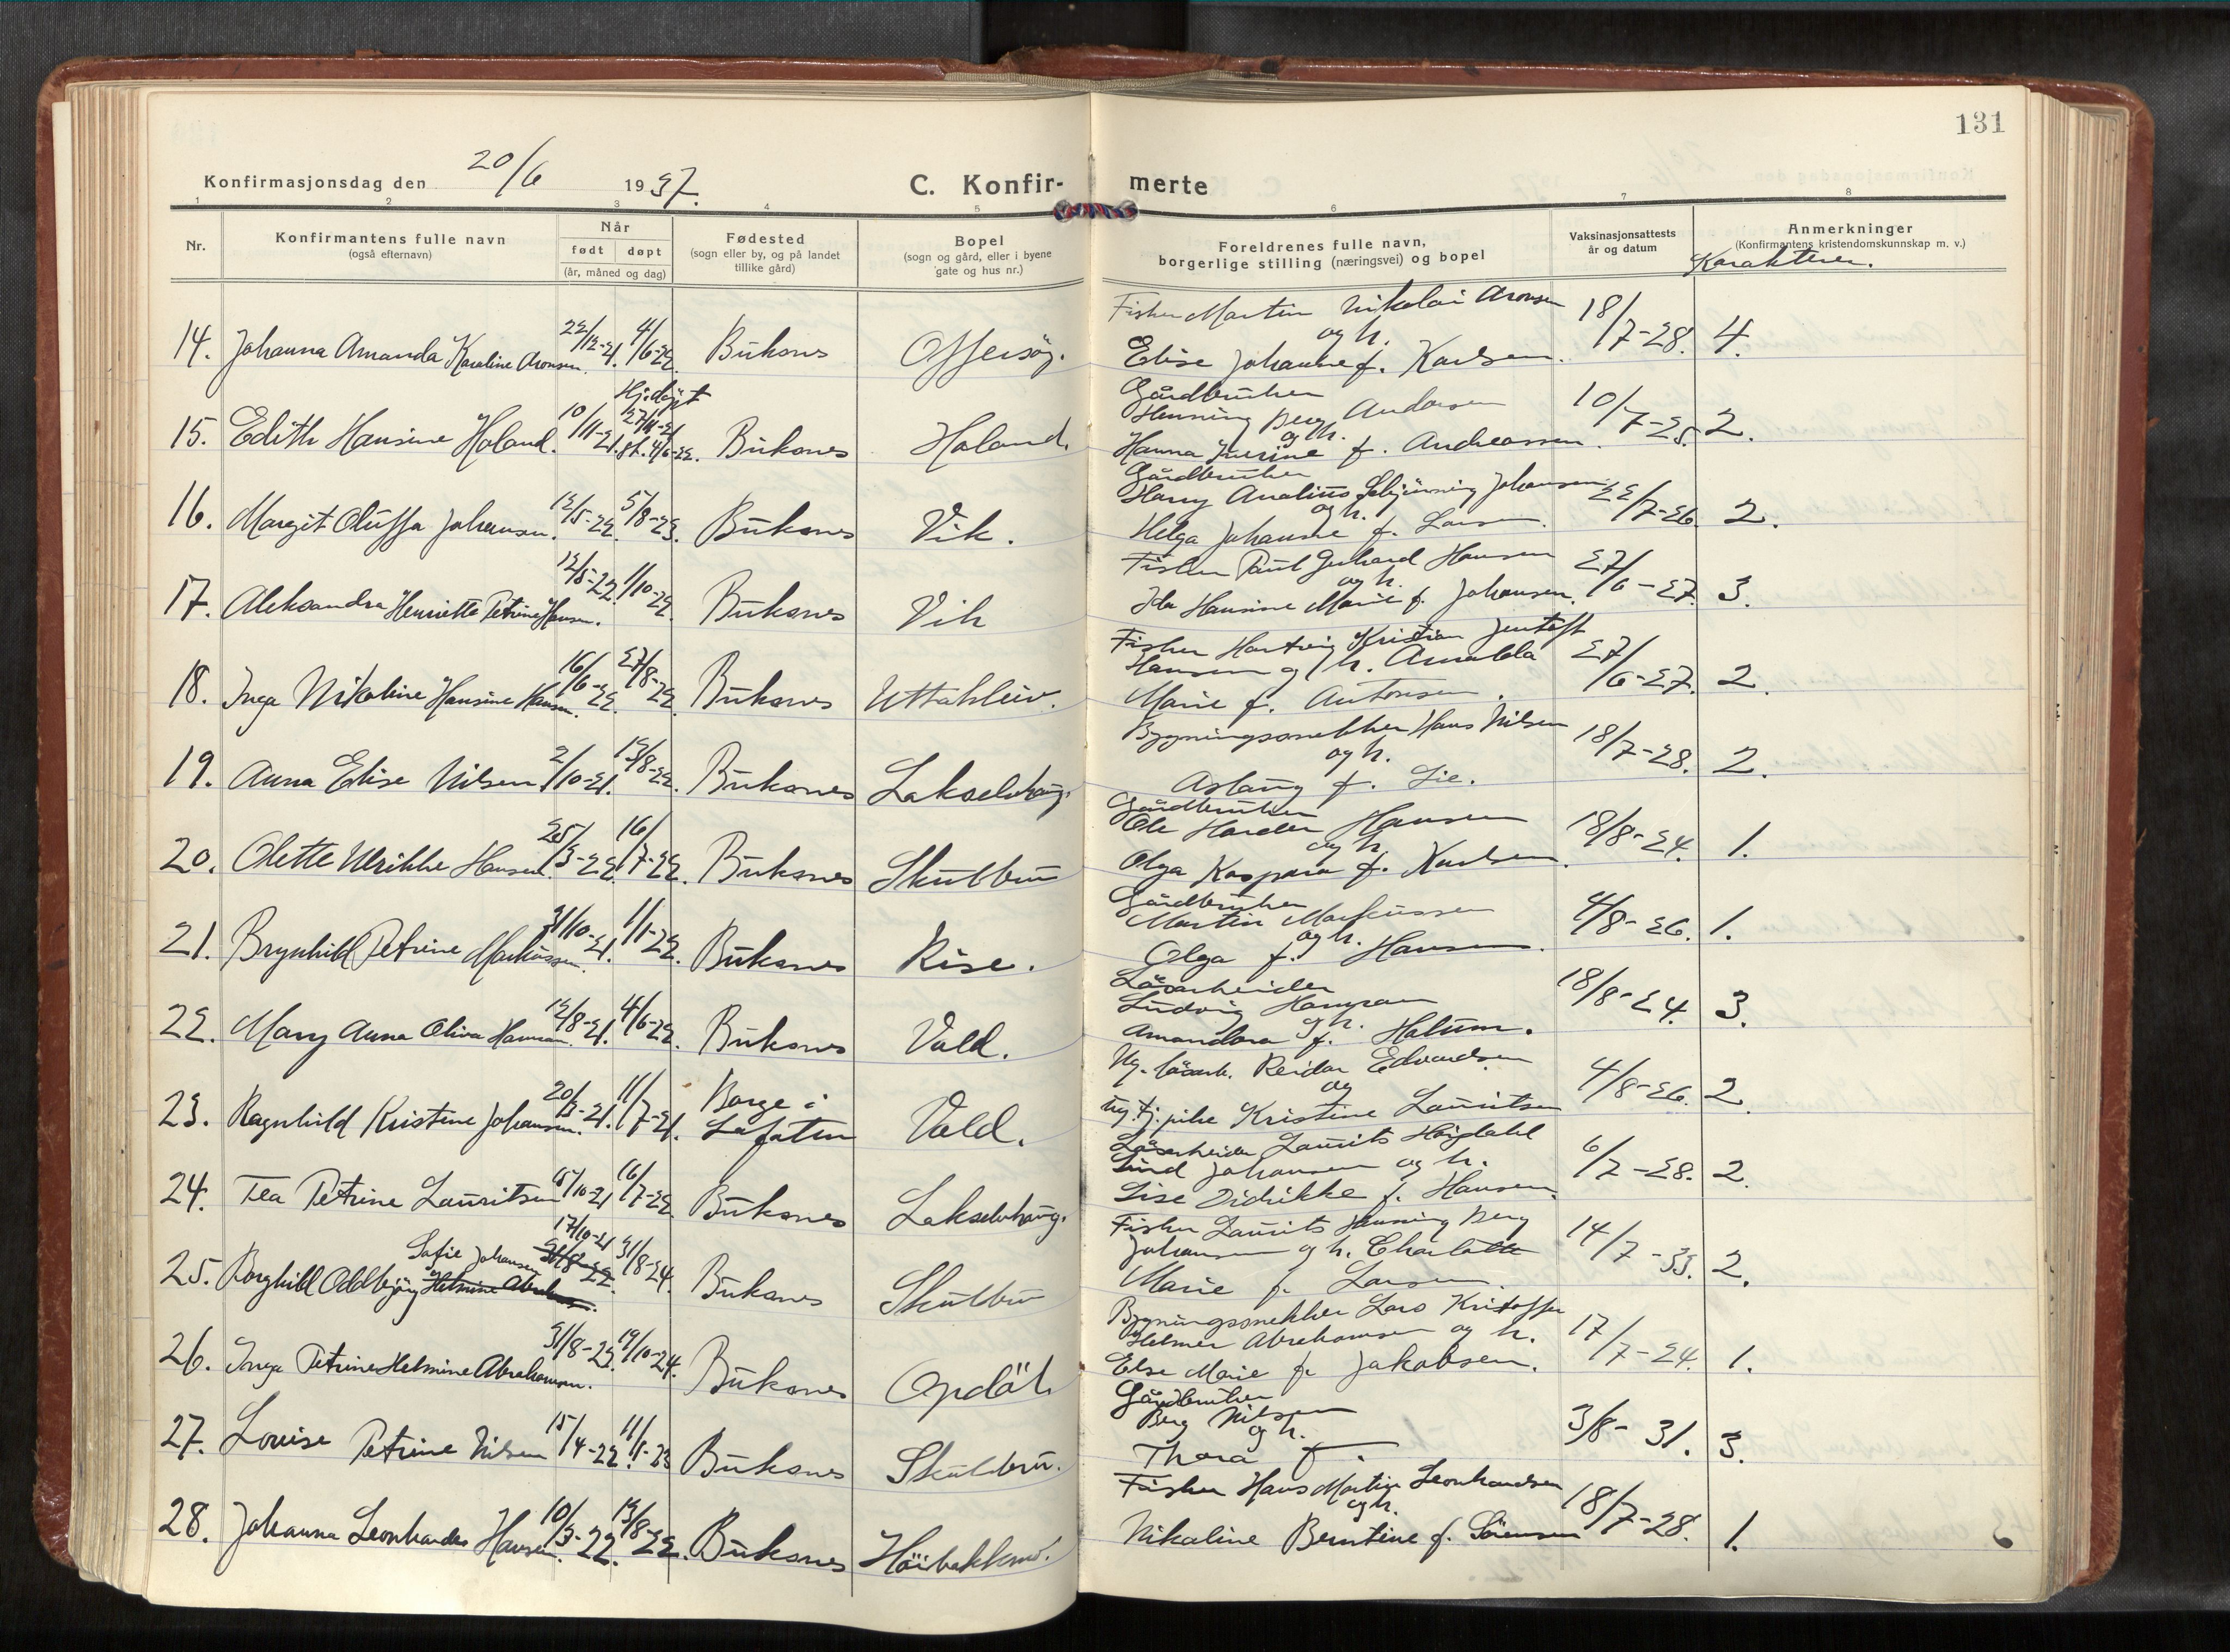 131
Konfirmasjonsdag den 20/6 1937.
C. Konfir-
merte
1 2 3 4 5 6 7 8
Nr.
Konfirmantens fulle navn
(også efternavn)
Når
født døpt
(år, måned og dag)
Fødested
(sogn eller by, og på landet
tillike gård)
Bopel
(sogn og gård, eller i byene
gate og hus nr.)
Foreldrenes fulle navn,
borgerlige stilling (næringsvei) og bopel
Vaksinasjonsattests
år og datum
Anmerkninger
(Konfirmantens kristendomskunnskap m. v.)
Karakterer.
14. Johanna Amanda Karoline Aronsen. 22/12-21. 4/6-22. Buksnes Offersøy.
Fisker Martin Nikolai Aronsen
og h.
Elise Johanne f. Karlsen. 18/7-28. 4.
15. Edith Hansine Holand. 10/11-21. Hj.døpt 27/11-21 st. 4/6-22. Buksnes Holand.
Gårdbruker
Henning Berg Andersen
og h.
Hanna Iverine f. Andreassen. 10/7-28. 2.
16. Margit Oluffa Johansen. 12/5-22. 5/8-23. Buksnes Vik.
Gårdbruker
Harry Analius Johansen
og h.
Helga Johanne f. Larsen. 22/7-26. 2.
17. Aleksandra Henriette Petrine Hansen. 12/5-22. 1/10-22. Buksnes Vik
Fisker Paul Gerhard Hansen
og h.
Ida Hansine Marie f. Johansen. 27/6-27. 3.
18. Inga Nikoline Hansine Hansen. 16/6-22. 27/8-22. Buksnes Uttakleiv.
Fisker Hartvig Kristian Jentoft
Hansen og h. Amalda
Marie f. Antonsen. 27/6-27. 2.
19. Anna Elise Nilsen 2/10-21. 13/8-22. Buksnes Lakselvhaug.
Bygningssnekker Hans Nilsen
og h.
Aslaug f. Lie. 18/7-28. 2.
20. Olette Ulrikke Hansen. 25/3-22. 16/7-22. Buksnes Skulbru
Gårdbruker
Ole Harder Hansen
og h.
Olga Kaspara f. Karlsen. 18/8-24. 1.
21. Brynhild Petrine Markussen. 31/10-21. 1/1-22. Buksnes Rise.
Gårdbruker
Martin Markussen
og h.
Olga f. Hansen. 4/8-26. 1.
22. Mary Anna Oliva Hamran. 12/8-21. 4/6-22. Buksnes Vold.
Løsarbeider
Ludvig Hamran
og h.
Amandora f. Holum. 18/8-24. 3.
23. Ragnhild Kristine Johansen. 20/3-21. 11/7-21. Borge i Lofoten Vold.
Ug. løsarb. Reidar Edvardsen
og
ug. tj.pike Kristine Lauritsen 4/8-26. 2.
24. Tea Petrine Lauritsen 15/10-21 16/7-22. Buksnes Lakselvhaug.
Løsarbeider Laurits Høgdahl
Lind Johansen og h.
Lise Didrikke f. Hansen. 6/7-28. 2.
25. Borghild Oddbjørg Sofie Johansen Helmine Abrahamsen. 17/10-21 31/8-22. 31/8-24. Buksnes Skulbru
Fisker Laurits Henning Berg
Johansen og h. Charlotte
Marie f. Larsen. 14/7-33. 2.
26. Inga Petrine Helmine Abrahamsen. 31/8-23. 19/10-24. Buksnes Opdøl.
Bygningssnekker Lars Kristoffer
Helmer Abrahamsen og h.
Else Marie f. Jakobsen. 17/7-24. 1.
27. Lovise Petrine Nilsen 15/4-22. 11/1-23 Buksnes Skulbru.
Gårdbruker
Berg Nilsen
og h.
Thora f. 3/8-31. 3.
28. Johanna Leonhardes Hansen. 10/3-22. 13/8-22. Buksnes Høibakkmo.
Fisker Hans Martin Leonhardsen
og h.
Nikoline Berntine f. Sørensen 18/7-28. 1.